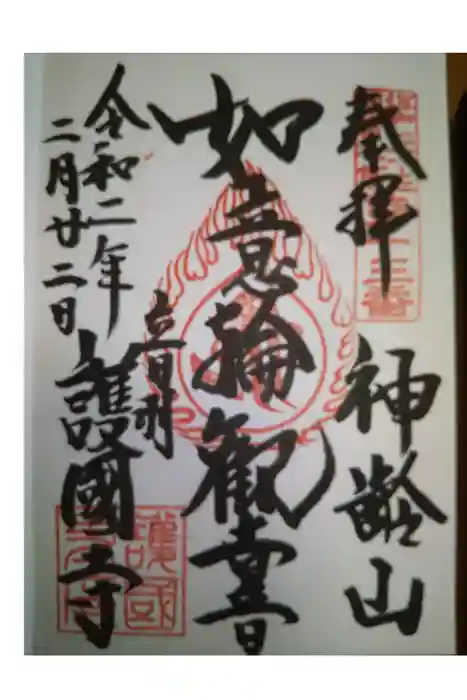 奉拝
神齢山
如意輪観音
音羽
護國寺
令和二年
二月廿二日
護國